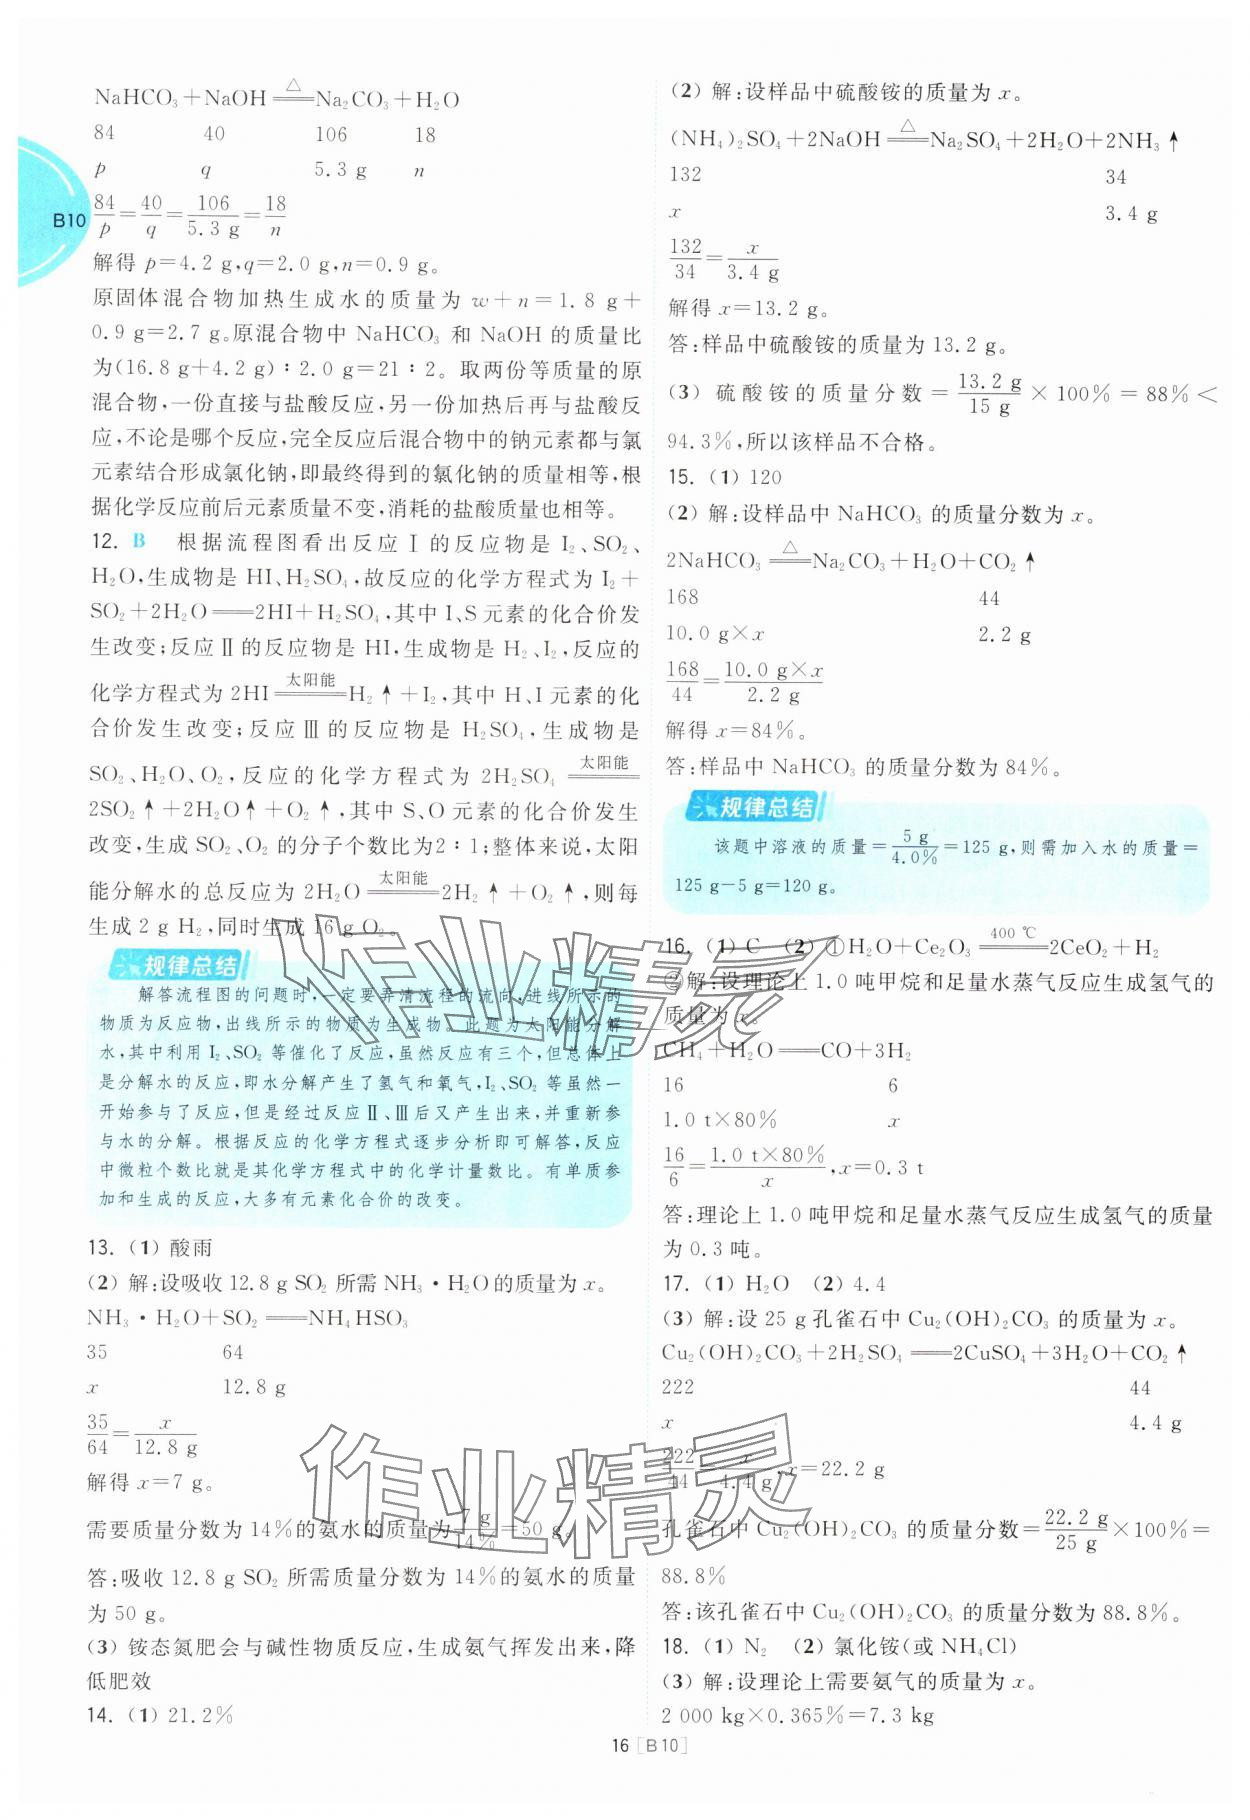 B10
NaHCO₃+NaOH \xlongequal{△} Na₂CO₃+H₂O
84 40 106 18
p q 5.3 g n
84/p=40/q=106/5.3 g=18/n
解得 p=4.2 g,q=2.0 g,n=0.9 g。
原固体混合物加热生成水的质量为 w+n=1.8 g+
0.9 g=2.7 g。原混合物中 NaHCO₃ 和 NaOH 的质量比
为(16.8 g+4.2 g)∶2.0 g=21∶2。取两份等质量的原
混合物,一份直接与盐酸反应,另一份加热后再与盐酸反
应,不论是哪个反应,完全反应后混合物中的钠元素都与氯
元素结合形成氯化钠,即最终得到的氯化钠的质量相等,根
据化学反应前后元素质量不变,消耗的盐酸质量也相等。
12. B 根据流程图看出反应Ⅰ的反应物是 I₂、SO₂、
H₂O,生成物是 HI、H₂SO₄,故反应的化学方程式为 I₂+
SO₂+2H₂O══2HI+H₂SO₄,其中 I、S 元素的化合价发
生改变;反应Ⅱ的反应物是 HI,生成物是 H₂、I₂,反应的
化学方程式为 2HI \xlongequal{太阳能} H₂↑+I₂,其中 H、I 元素的化
合价发生改变;反应Ⅲ的反应物是 H₂SO₄,生成物是
SO₂、H₂O、O₂,反应的化学方程式为 2H₂SO₄ \xlongequal{太阳能}
2SO₂↑+2H₂O↑+O₂↑,其中 S、O 元素的化合价发生
改变,生成 SO₂、O₂ 的分子个数比为2∶1;整体来说,太阳
能分解水的总反应为 2H₂O \xlongequal{太阳能} 2H₂↑+O₂↑,则每
生成 2 g H₂,同时生成 16 g O₂。
规律总结
解答流程图的问题时,一定要弄清流程的流向,进线所示的
物质为反应物,出线所示的物质为生成物。此题为太阳能分解
水,其中利用 I₂、SO₂ 等催化了反应,虽然反应有三个,但总体上
是分解水的反应,即水分解产生了氢气和氧气,I₂、SO₂ 等虽然一
开始参与了反应,但是经过反应Ⅱ、Ⅲ后又产生出来,并重新参
与水的分解。根据反应的化学方程式逐步分析即可解答,反应
中微粒个数比就是其化学方程式中的化学计量数比。有单质参
加和生成的反应,大多有元素化合价的改变。
13. (1) 酸雨
(2) 解:设吸收 12.8 g SO₂ 所需 NH₃·H₂O的质量为 x。
NH₃·H₂O+SO₂══NH₄HSO₃
35 64
x 12.8 g
35/64=x/12.8 g
解得 x=7 g。
需要质量分数为 14%的氨水的质量为7 g/14%=50 g。
答:吸收 12.8 g SO₂ 所需质量分数为 14%的氨水的质量
为 50 g。
(3) 铵态氮肥会与碱性物质反应,生成氨气挥发出来,降
低肥效
14. (1) 21.2%
(2) 解:设样品中硫酸铵的质量为 x。
(NH₄)₂SO₄+2NaOH \xlongequal{△} Na₂SO₄+2H₂O+2NH₃↑
132 34
x 3.4 g
132/34=x/3.4 g
解得 x=13.2 g。
答:样品中硫酸铵的质量为 13.2 g。
(3) 硫酸铵的质量分数=13.2 g/15 g×100%=88%<
94.3%,所以该样品不合格。
15. (1) 120
(2) 解:设样品中 NaHCO₃ 的质量分数为 x。
2NaHCO₃ \xlongequal{△} Na₂CO₃+H₂O+CO₂↑
168 44
10.0 g×x 2.2 g
168/44=10.0 g×x/2.2 g
解得 x=84%。
答:样品中 NaHCO₃ 的质量分数为 84%。
规律总结
该题中溶液的质量=5 g/4.0%=125 g,则需加入水的质量=
125 g-5 g=120 g。
16. (1) C (2) ①H₂O+Ce₂O₃ \xlongequal{400 ℃} 2CeO₂+H₂
②解:设理论上 1.0 吨甲烷和足量水蒸气反应生成氢气的
质量为 x。
CH₄+H₂O══CO+3H₂
16 6
1.0 t×80% x
16/6=1.0 t×80%/x,x=0.3 t
答:理论上 1.0 吨甲烷和足量水蒸气反应生成氢气的质量
为 0.3 吨。
17. (1) H₂O (2) 4.4
(3) 解:设 25 g 孔雀石中 Cu₂(OH)₂CO₃ 的质量为 x。
Cu₂(OH)₂CO₃+2H₂SO₄══2CuSO₄+3H₂O+CO₂↑
222 44
x 4.4 g
222/44=x/4.4 g,x=22.2 g
孔雀石中 Cu₂(OH)₂CO₃ 的质量分数=22.2 g/25 g×100%=
88.8%
答:该孔雀石中 Cu₂(OH)₂CO₃ 的质量分数为 88.8%。
18. (1) N₂ (2) 氯化铵(或 NH₄Cl)
(3) 解:设理论上需要氨气的质量为 x。
2 000 kg×0.365%=7.3 kg
16[B10]
作业精灵
作业精灵